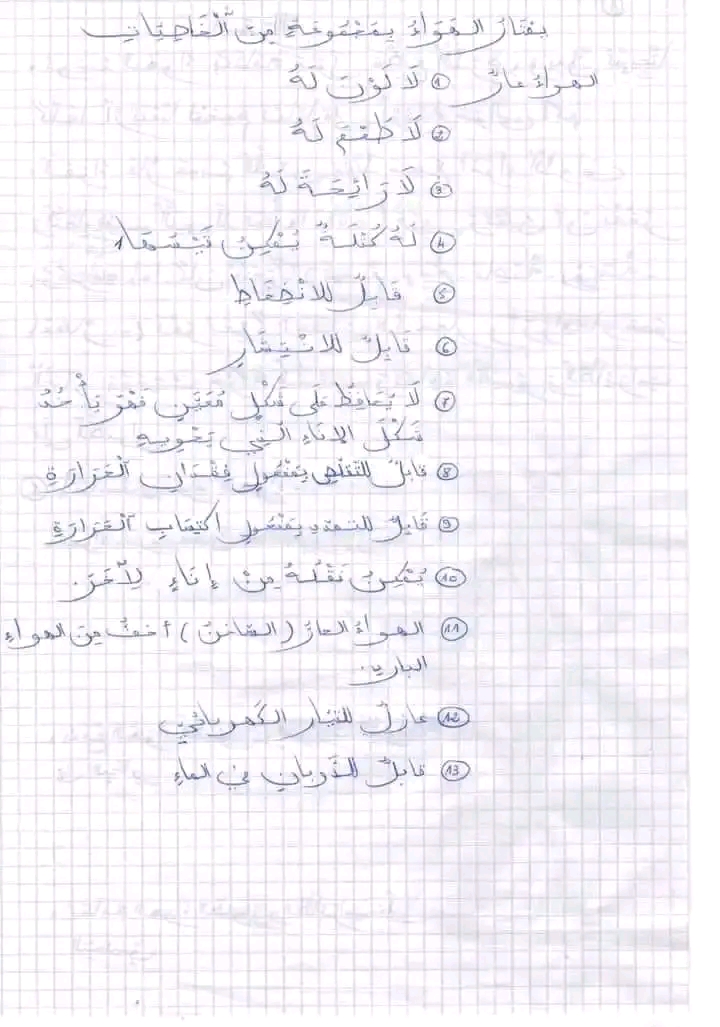 يمتاز الهواء بمجموعة من الخاصيات
الهواء غاز ① لَا لَوْنَ لَهُ
② لَا طَعْمَ لَهُ
③ لَا رَائِحَةَ لَهُ
④ لَهُ كُتْلَةٌ يُمْكِنُ قَيْسُهَا
⑤ قَابِلٌ للانْضِغَاطِ
⑥ قَابِلٌ للانْتِشَارِ
⑦ لَا يُحَافِظُ عَلَى شَكْلٍ مُعَيَّنٍ فَهْوَ يَأْخُذُ
شَكْلَ الإنَاءِ الَّذِي يَحْوِيهِ
⑧ قابلٌ للتَّقَلُّصِ بِمَفْعُولِ فِقْدَانِ الْحَرَارَةِ
⑨ قَابِلٌ للتمدد بِمَفْعُولِ اكْتِسَابِ الْحَرَارَةِ
⑩ يُمْكِنُ نَقْلُهُ مِنْ إِنَاءٍ لِآخَرَ.
⑪ الهواءُ الحارُّ (السَّاخنُ) أخفُّ مِنَ الهواءِ
البارد
⑫ عازلٌ للتيَّار الكَهربائيّ
⑬ قابلٌ للذَّوبانِ في الماءِ